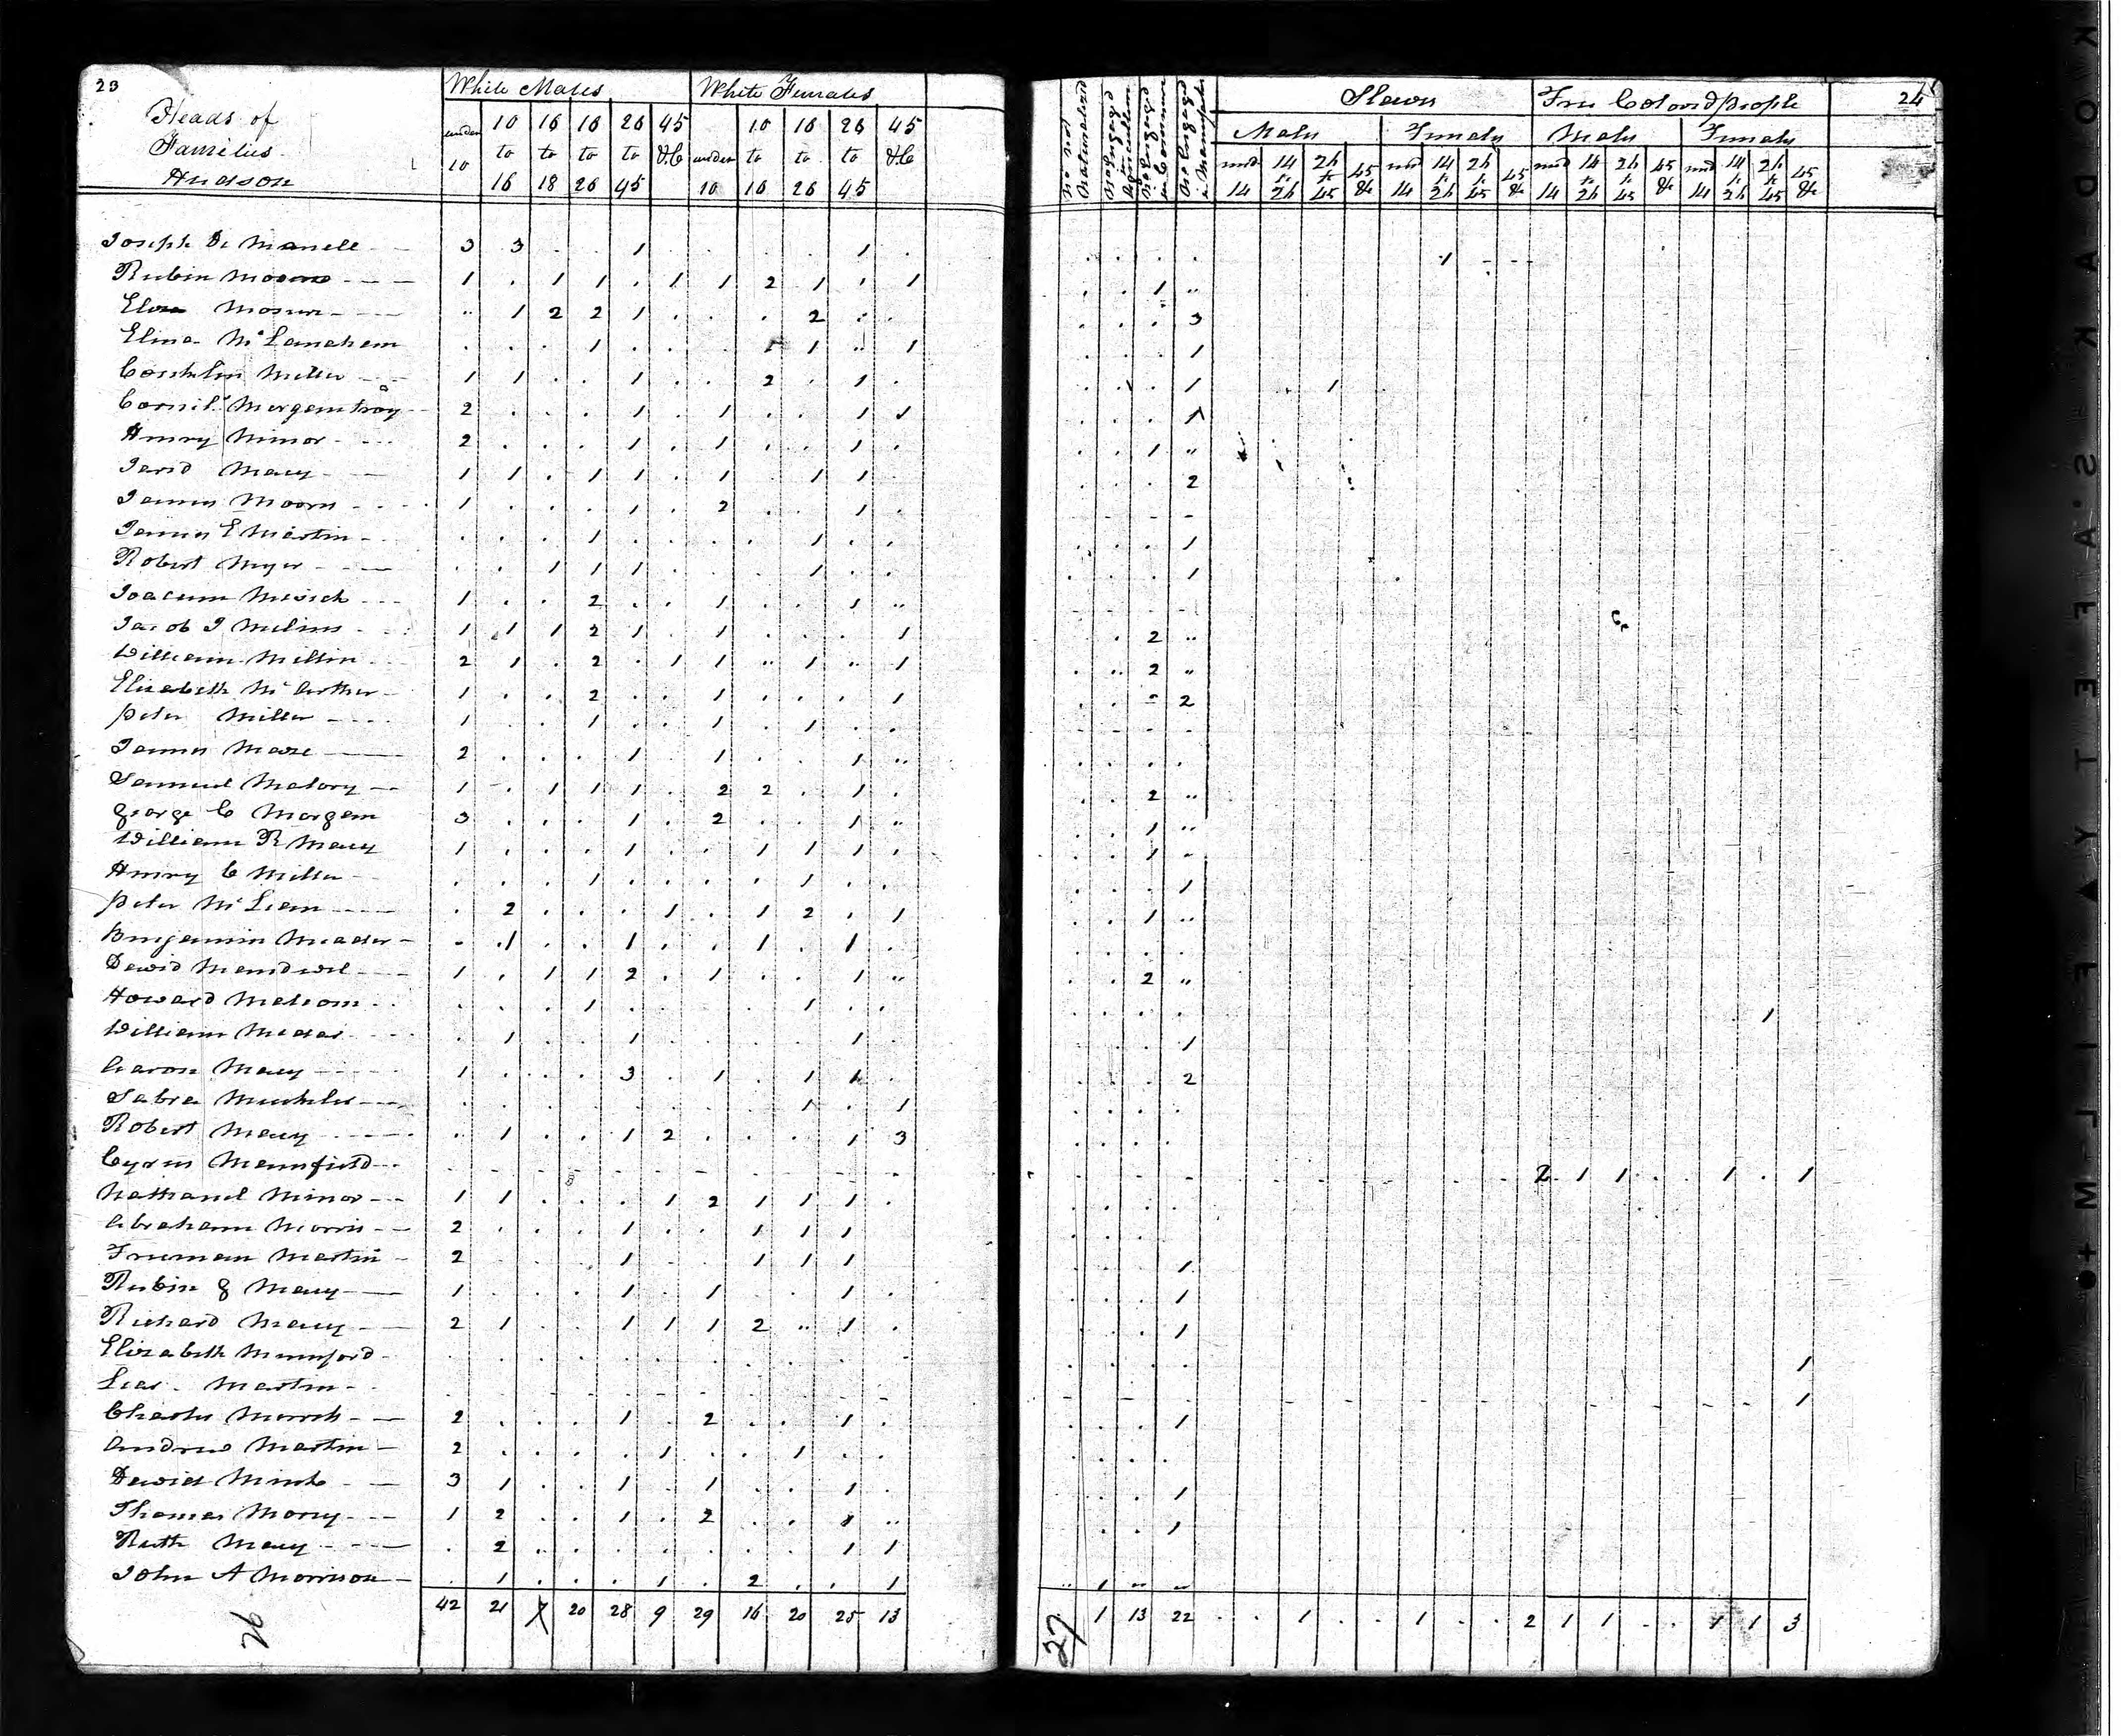 23
Heads of
Families
Hudson
White Males White Females
under 10 16 16 26 45 under 10 16 26 45
10 to to to to &c 10 to to to &c
16 18 26 45 16 26 45
24
No not Naturalized
No Engaged in Agriculture
No Engaged in Commerce
No Engaged in Manufactu
Slaves Free Colored people
Males Females Males Females
und 14 26 45 und 14 26 45 und 14 26 45 und 14 26 45
14 to to &c 14 to to &c 14 to to &c 14 to to &c
26 45 26 45 26 45 26 45
Joseph D. Monell 3 3 . . 1 . . . . 1 . . . . . 1
Rubin 1 . 1 1 . 1 1 2 1 . 1 . . 1 ..
.. 1 2 2 1 . . . 2 . . . . . 3
. . . 1 . . 1 .. 1 . . . 1
Miller 1 1 . . 1 . . 2 . 1 . . . 1 1
2 . . . 1 . 1 . . 1 1 . . . 1
Henry Minor 2 . . . 1 . 1 . . 1 . . . 1 ..
Macy 1 1 . 1 1 . 1 . 1 1 . . . 2
James Moores 1 . . . 1 . 2 . . 1 . - - - -
James E Martin . . . 1 . . . . 1 . . . . . 1
Robert Myer . . 1 1 1 . . . 1 . . . . . 1
1 . . 2 . . 1 . . 1 .. - - - -
Jacob I 1 1 1 2 1 . 1 . . . 1 . . 2 ..
William 2 1 . 2 . 1 1 .. 1 .. 1 . .. 2 ..
Elizabeth McArther 1 . . 2 . . 1 . . . 1 . . - 2
Peter Miller 1 . . 1 . . 1 . 1 . . - - - -
James 2 . . . 1 . 1 . . 1 .. . . . .
Samuel Malory 1 - 1 1 1 . 2 2 . 1 . . . 2 ..
George C Morgan 3 . . . 1 . 2 . . 1 .. . . 1 ..
William R Macy 1 . . . 1 . . 1 1 1 . . . 1 -
Henry C Miller . . . 1 . . . . 1 . . . . . 1
Peter McLean . 2 . . . 1 . 1 2 . 1 . . 1 ..
Benjamin Meader - 1 . . 1 . . 1 . 1 . . . . .
David 1 . 1 1 2 . 1 . . 1 .. . . 2 ..
Howard Malcom . . . 1 . . . . 1 . . . . . . 1
William . 1 . . 1 . . . . 1 . . . . 1
Aaron Macy 1 . . . 3 . 1 . 1 1 . . . . 2
. . . . . . . . 1 . 1 . . . .
Robert Macy .. 1 . . 1 2 . . . 1 3 . . . .
Cyrus Mannfield - - - - - - - - - - - 2 1 1 . . 1 . 1
Nathaniel Minor 1 1 . . . 1 2 1 1 1 . . . . .
Abraham Morris 2 . . . 1 . . 1 1 1 . . . .
Truman Martin 2 . . . 1 . . 1 1 1 . . . 1
Rubin G Macy 1 . . . 1 . 1 . . 1 . . . . 1
Richard Macy 2 1 . . 1 1 1 2 .. 1 . . . . 1
Elizabeth Mumford . . . . . . . . . . . . . . . 1
Martin - - - - - - - - - - - 1
Charles 2 . . . 1 . 2 . . 1 . . . . 1
Andrew Martin 2 . . . . 1 . . 1 . . . . . .
David 3 1 . . 1 . 1 . . 1 . . . . 1
Thomas 1 2 . . 1 . 2 . . 1 .. . . . 1
Ruth Macy . 2 . . . . . . . 1 1
John A Morrison . 1 . . . 1 . 2 . . 1 .. 1 .. ..
42 21 7 20 28 9 29 16 20 25 13 1 13 22 . . 1 . . 1 . . 2 1 1 . . 1 1 3
26
27
KODAK SAFETY FILM